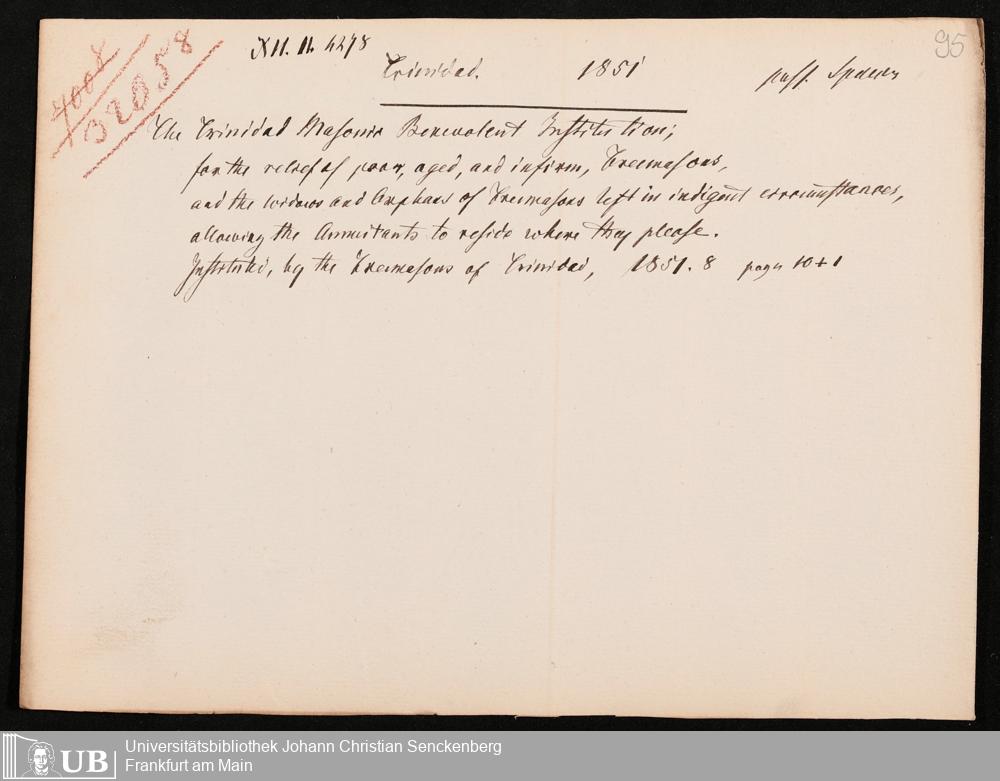 95
XII. 11. 4278
7008
32058
Trinidad. 1851 poss. Spencer
The Trinidad Masonic Benevolent Institution;
for the relief of poor, aged, and infirm, Freemasons,
and the widows and Orphans of Freemasons left in indigent circumstances,
allowing the Annuitants to reside where they please.
Instituted, by the Freemasons of Trinidad, 1851. 8 pages 10+1
UB Universitätsbibliothek Johann Christian Senckenberg
Frankfurt am Main